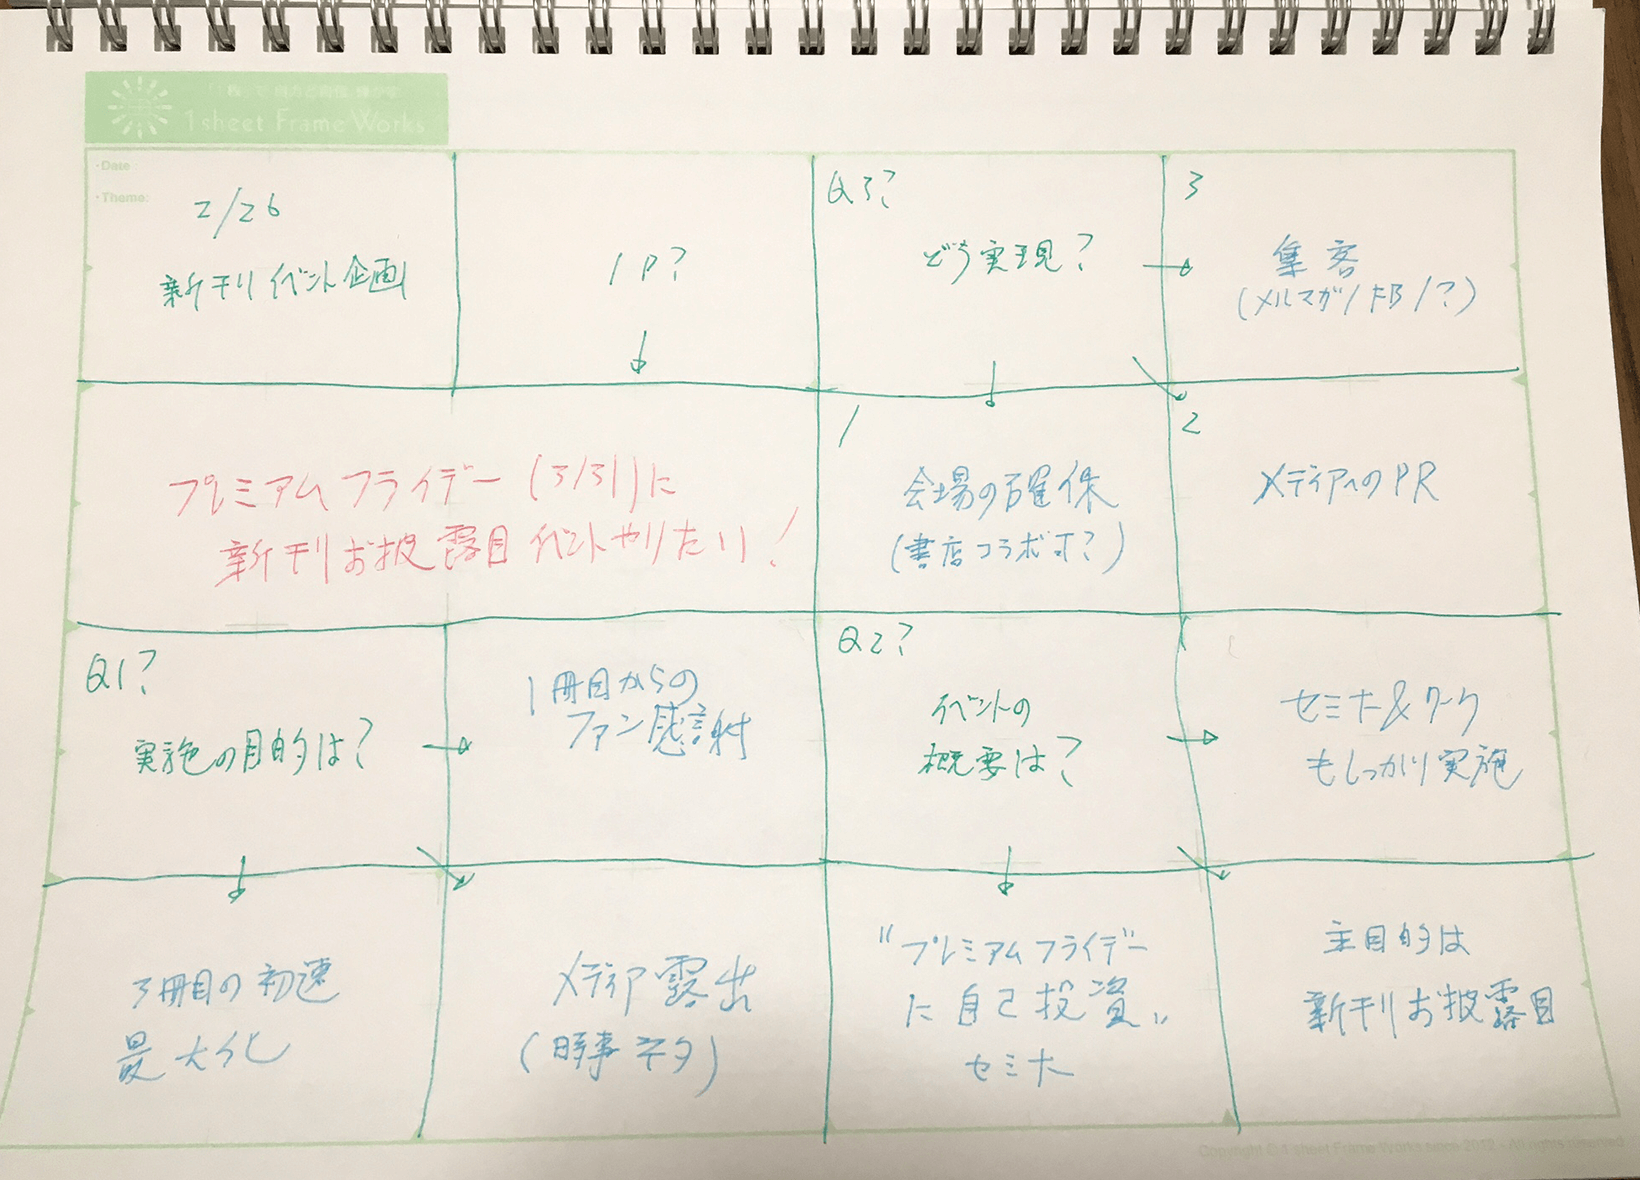 1 sheet Frame Works
・Date
・Theme:
2/26
新刊イベント企画
1P?
Q3?
どう実現?
3
集客
(メルマガ/FB/?)
プレミアムフライデー(3/31)に
新刊お披露目イベントやりたい!
1
会場の確保
(書店コラボは?)
2
メディアへのPR
Q1?
実施の目的は?
1冊目からの
ファン感謝
Q2?
イベントの
概要は?
セミナー&ワーク
もしっかり実施
3冊目の初速
最大化
メディア露出
(時事ネタ)
"プレミアムフライデー
に自己投資"
セミナー
主目的は
新刊お披露目
Copyright © 1 sheet Frame Works since 2012 - All rights reserved